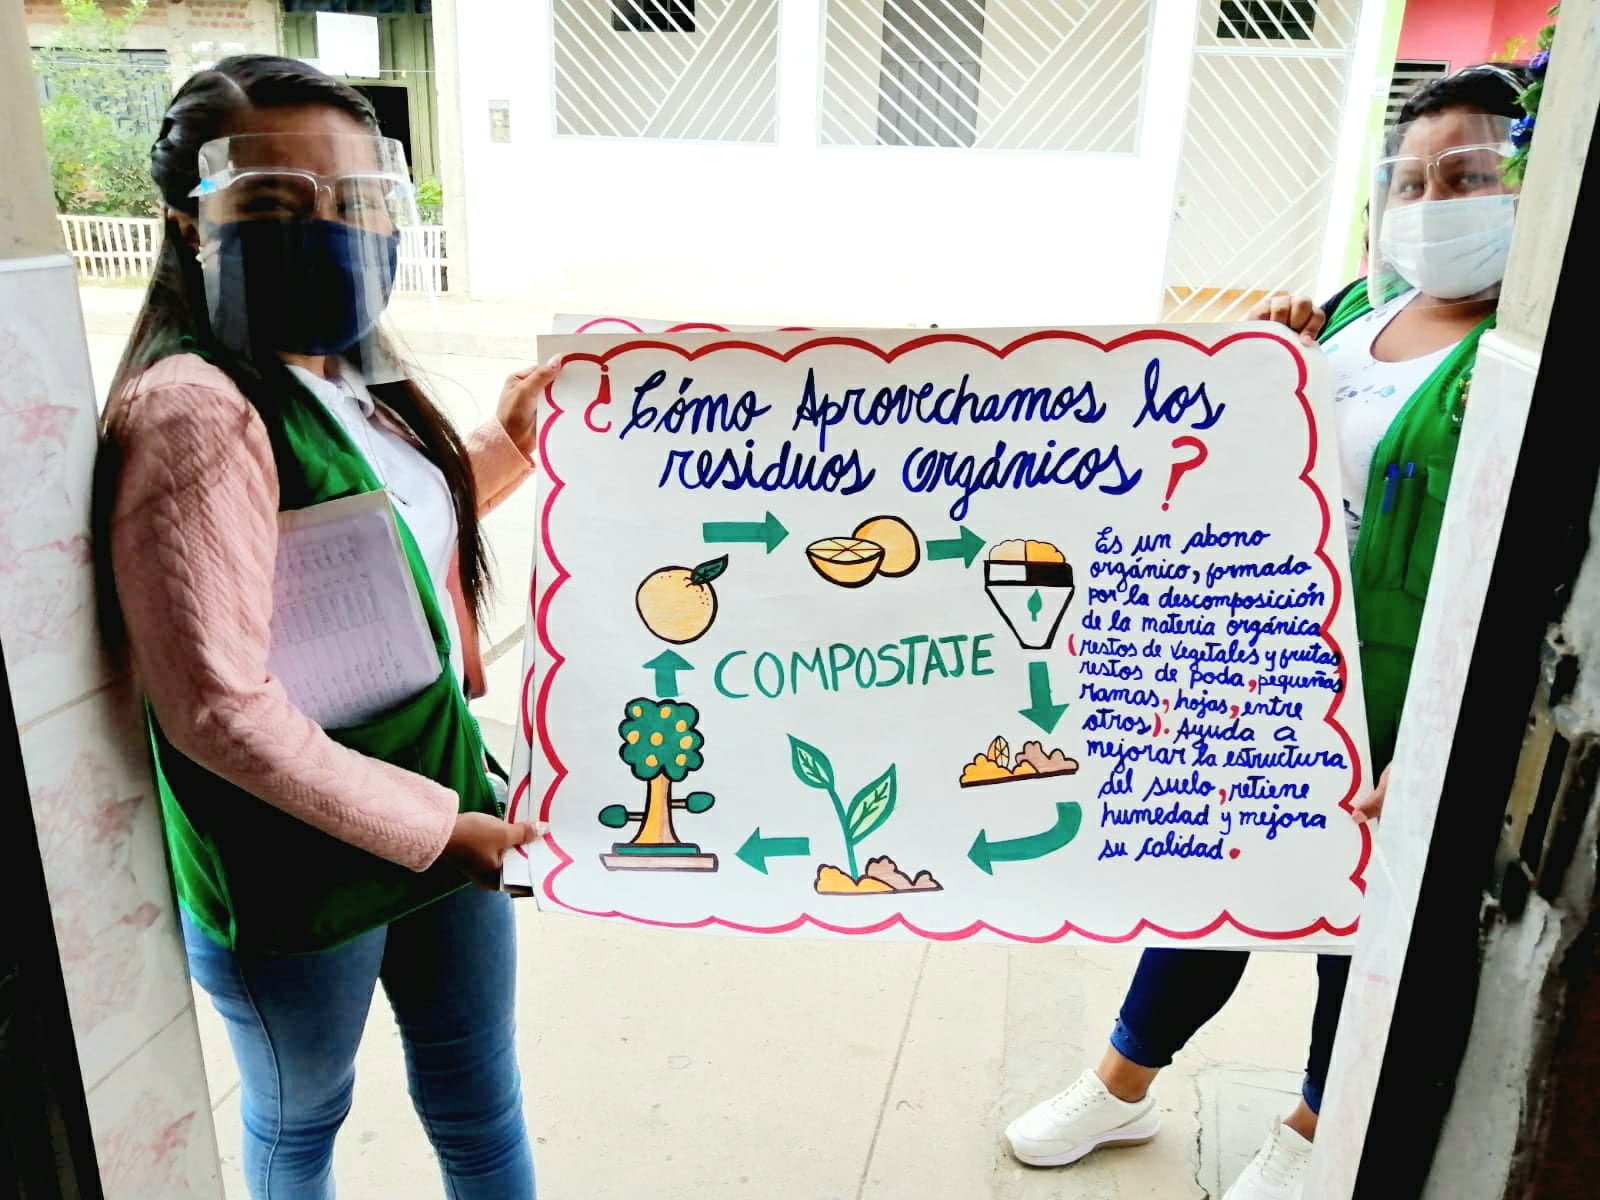 ¿Cómo Aprovechamos los
residuos orgánicos?
COMPOSTAJE
Es un abono
orgánico, formado
por la descomposición
de la materia orgánica
(restos de vegetales y frutas,
restos de poda, pequeñas
ramas, hojas, entre
otros). Ayuda a
mejorar la estructura
del suelo, retiene
humedad y mejora
su calidad.